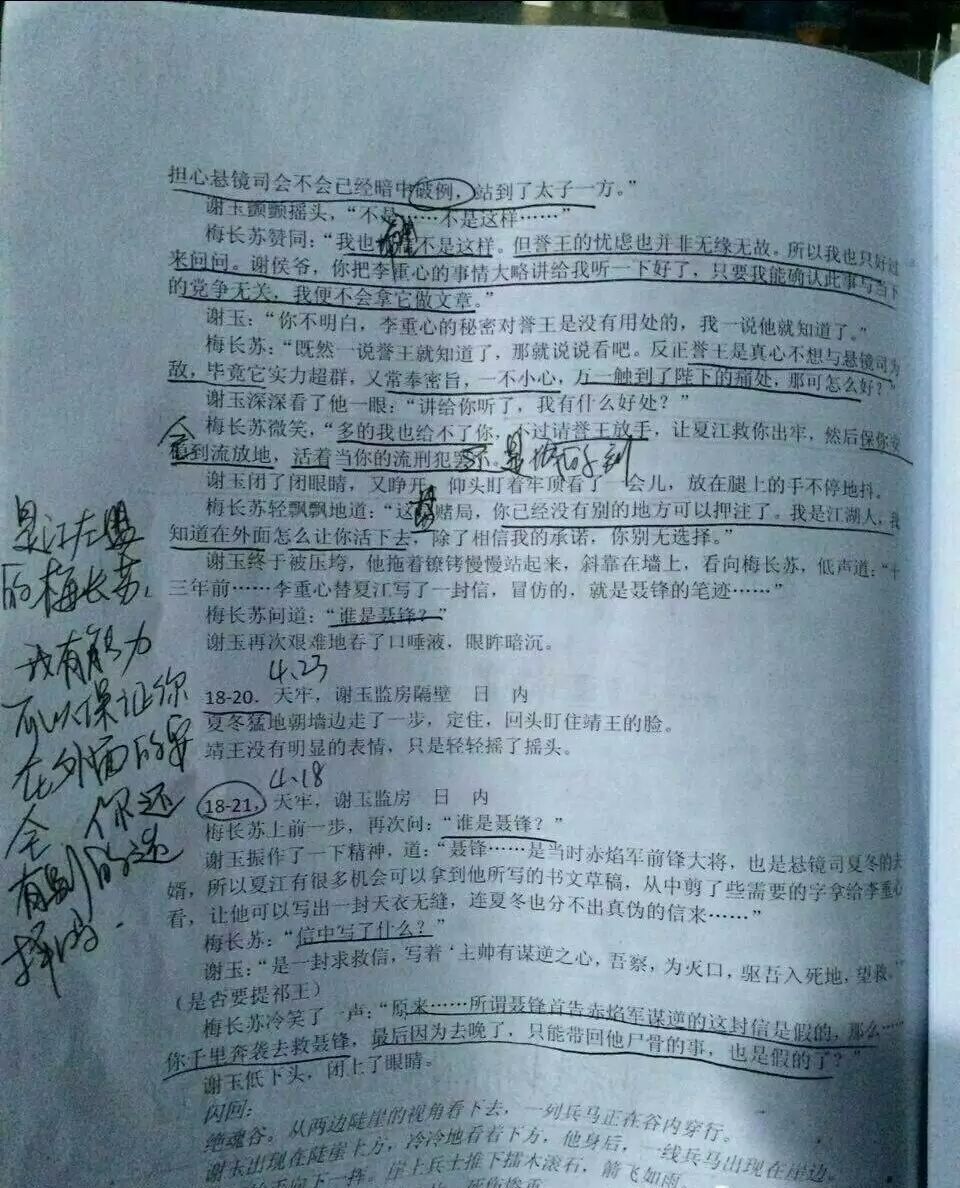 担心悬镜司会不会已经暗中破例，站到了太子一方。”
谢玉颤颤摇头，“不是……不是这样……”
梅长苏赞同：“我也 不是这样。但誉王的忧虑也并非无缘无故，所以我也只好过
来问问。谢侯爷，你把李重心的事情大略讲给我听一下好了，只要我能确认此事与当下
的党争无关，我便不会拿它做文章。”
谢玉：“你不明白，李重心的秘密对誉王是没有用处的，我一说他就知道了。”
梅长苏：“既然一说誉王就知道了，那就说说看吧。反正誉王是真心不想与悬镜司为
敌，毕竟它实力超群，又常奉密旨，一不小心，万一触到了陛下的痛处，那可怎么好？”
谢玉深深看了他一眼：“讲给你听了，我有什么好处？”
梅长苏微笑，“多的我也给不了你，不过请誉王放手，让夏江救你出牢，然后保你安
全到流放地，活着当你的流刑犯罢了。
谢玉闭了闭眼睛，又睁开，仰头盯着牢顶看了一会儿，放在腿上的手不停地抖。
梅长苏轻飘飘地道：“这 赌局，你已经没有别的地方可以押注了。我是江湖人，我
知道在外面怎么让你活下去，除了相信我的承诺，你别无选择。”
谢玉终于被压垮，他拖着镣铐慢慢站起来，斜靠在墙上，看向梅长苏，低声道：“十
三年前……李重心替夏江写了一封信，冒仿的，就是聂锋的笔迹……”
梅长苏问道：“谁是聂锋？”
谢玉再次艰难地吞了口唾液，眼眸暗沉。
4.23
18-20. 天牢，谢玉监房隔壁 日 内
夏冬猛地朝墙边走了一步，定住，回头盯住靖王的脸。
靖王没有明显的表情，只是轻轻摇了摇头。
4.18
18-21. 天牢，谢玉监房 日 内
梅长苏上前一步，再次问：“谁是聂锋？”
谢玉振作了一下精神，道：“聂锋……是当时赤焰军前锋大将，也是悬镜司夏冬的夫
婿，所以夏江有很多机会可以拿到他所写的书文草稿，从中剪了些需要的字拿给李重心
看，让他可以写出一封天衣无缝，连夏冬也分不出真伪的信来……”
梅长苏：“信中写了什么？”
谢玉：“是一封求救信，写着‘主帅有谋逆之心，吾察，为灭口，驱吾入死地，望救。’”
（是否要提祁王）
梅长苏冷笑了一声：“原来……所谓聂锋首告赤焰军谋逆的这封信是假的，那么……
你千里奔袭去救聂锋，最后因为去晚了，只能带回他尸骨的事，也是假的了？”
谢玉低下头，闭上了眼睛。
闪回：
绝魂谷。从两边陡崖的视角看下去，一列兵马正在谷内穿行。
谢玉出现在陡崖上方，冷冷地看着下方，他身后，一线兵马出现在崖边。
下一挥。崖上兵士推下擂木滚石，箭飞如雨。
是江左盟
的梅长苏，
我有能力
可以保证你
在外面的安
全 你还
有别的选
择吗.